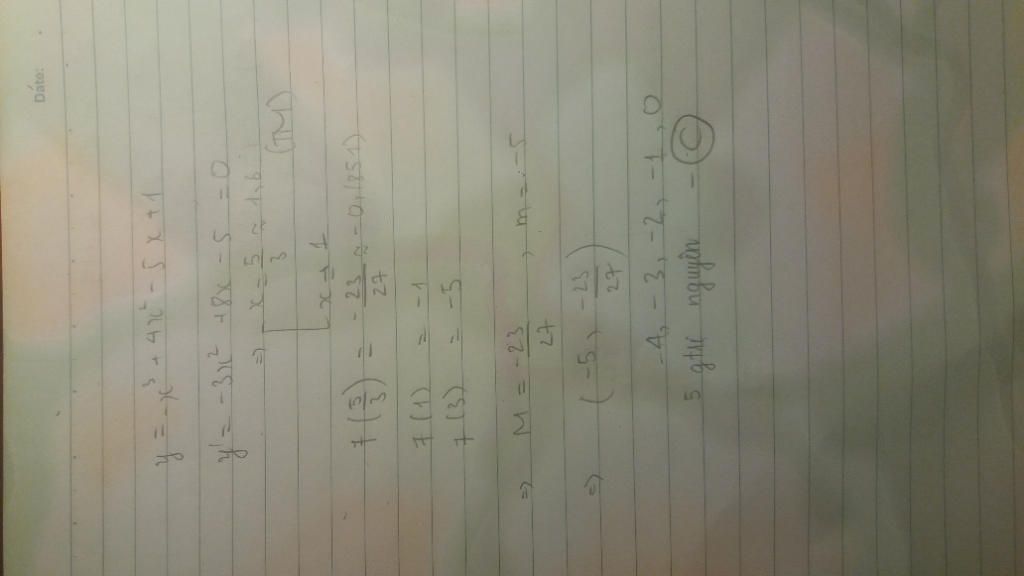 Date:
y = -x³ + 4x² - 5x + 1
y' = -3x² + 8x - 5 = 0
=> [ x = 5/3 ≈ 1,6
x = 1 (TM)
7 (5/3) = -23/27 ≈ -0,(851)
7 (1) = -1
7 (3) = -5
=> M = -23/27 , m = -5
=> (-5, -23/27)
-4, -3, -2, -1, 0
5 gtrị nguyên - C